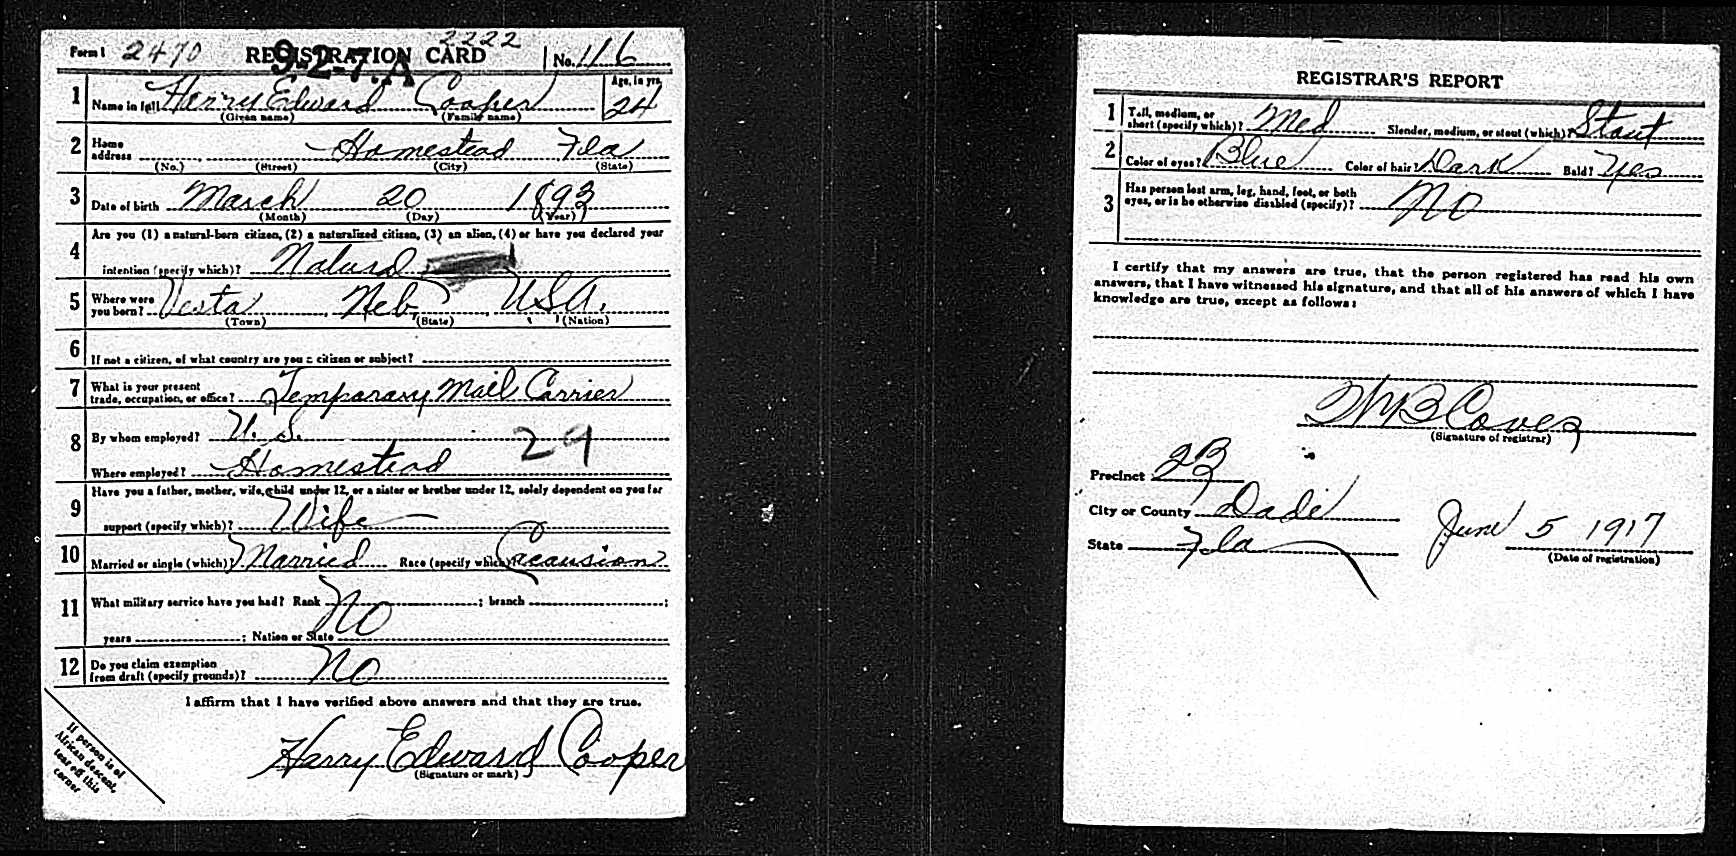 Form 1 2470 REGISTRATION CARD 2222 No. 116
9-2-7.A
1 Name in full Harry Edward Cooper Age, in yrs. 24
(Given name) (Family name)
2 Home address Homestead Fla
(No.) (Street) (City) (State)
3 Date of birth March 20 1893
(Month) (Day) (Year)
4 Are you (1) a natural-born citizen, (2) a naturalized citizen, (3) an alien, (4) or have you declared your
intention (specify which)? Natural
5 Where were you born? Vesta Neb USA.
(Town) (State) (Nation)
6 If not a citizen, of what country are you a citizen or subject?
7 What is your present
trade, occupation, or office? Temporary Mail Carrier
8 By whom employed? U. S. 29
Where employed? Homestead
9 Have you a father, mother, wife, child under 12, or a sister or brother under 12, solely dependent on you for
support (specify which)? Wife
10 Married or single (which)? Married Race (specify which)? Cacausion
11 What military service have you had? Rank No ; branch ;
years ; Nation or State
12 Do you claim exemption
from draft (specify grounds)? No
I affirm that I have verified above answers and that they are true.
Harry Edward Cooper
(Signature or mark)
If person is of
African descent,
tear off this
corner
REGISTRAR'S REPORT
1 Tall, medium, or
short (specify which)? Med Slender, medium, or stout (which)? Stout
2 Color of eyes? Blue Color of hair? Dark Bald? Yes
3 Has person lost arm, leg, hand, foot, or both
eyes, or is he otherwise disabled (specify)? No
I certify that my answers are true, that the person registered has read his own
answers, that I have witnessed his signature, and that all of his answers of which I have
knowledge are true, except as follows:
(Signature of registrar)
Precinct 23
City or County Dade
State Fla
June 5 1917
(Date of registration)